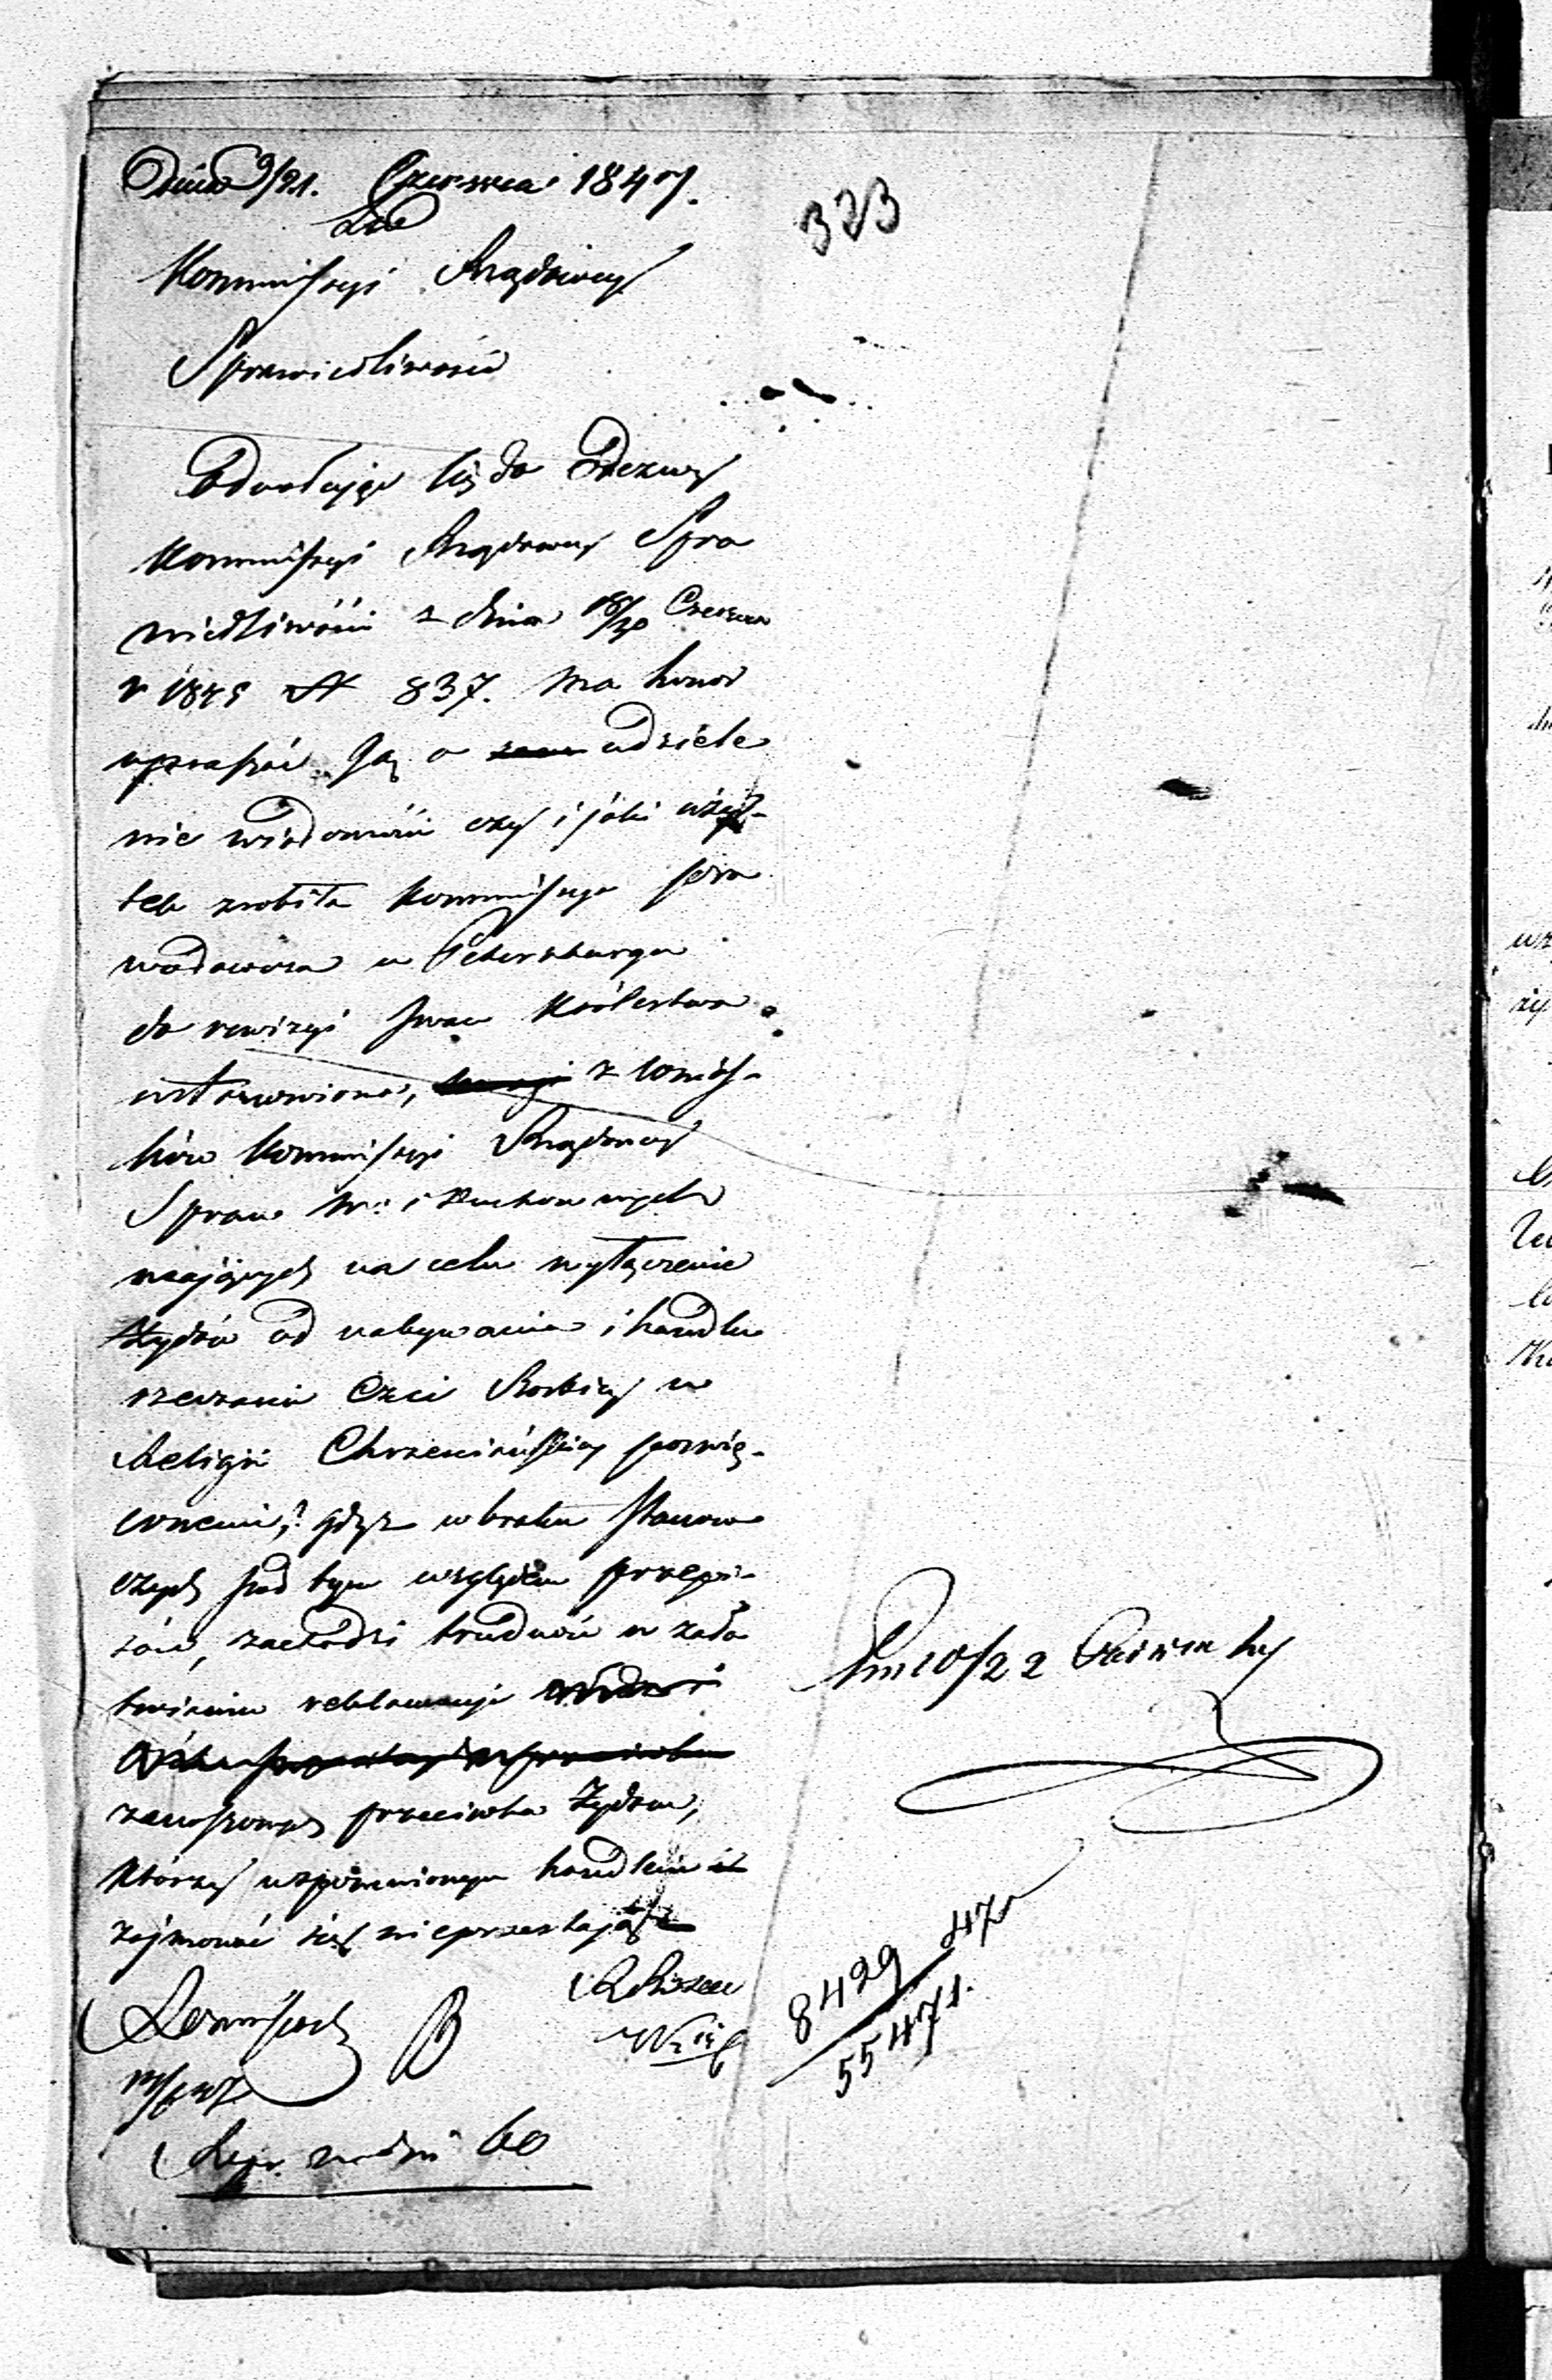 Dnia 9/21. Czerwca 1847.
323
Do
Kommissyi Rządowey
Sprawiedliwości
Odwołując się do Odezwy
Kommissyi Rządowey Spra
wiedliwości z dnia 18/30 Czerwca
r 1845 N 837. ma honor
upraszać Ją o udziele
nie wiadomości czy i jaki użyt-
tek zrobiła Kommissya pra
wodawcza w Petersburgu
do rewizyi praw Królestwa
ustanowiona, z wnios-
ków Kommissyi Rządowey
Spraw W: i Duchownych
mających na celu wyłączenie
Żydów od nabywania i handlu
rzeczami Czci Boskiey w
Religii Chrześciańskiey poświę-
conemi, gdyż w braku stanow
czych pod tym względem przepi-
sów, zachodzi trudność w zała
twieniu reklamacyi
zanoszonych przeciwko Żydom,
którzy wspomnionym handlem
zajmować się nieprzestają
Dnia 10/22 Czerwca
8429
47
55471.
Rep. na dni 60